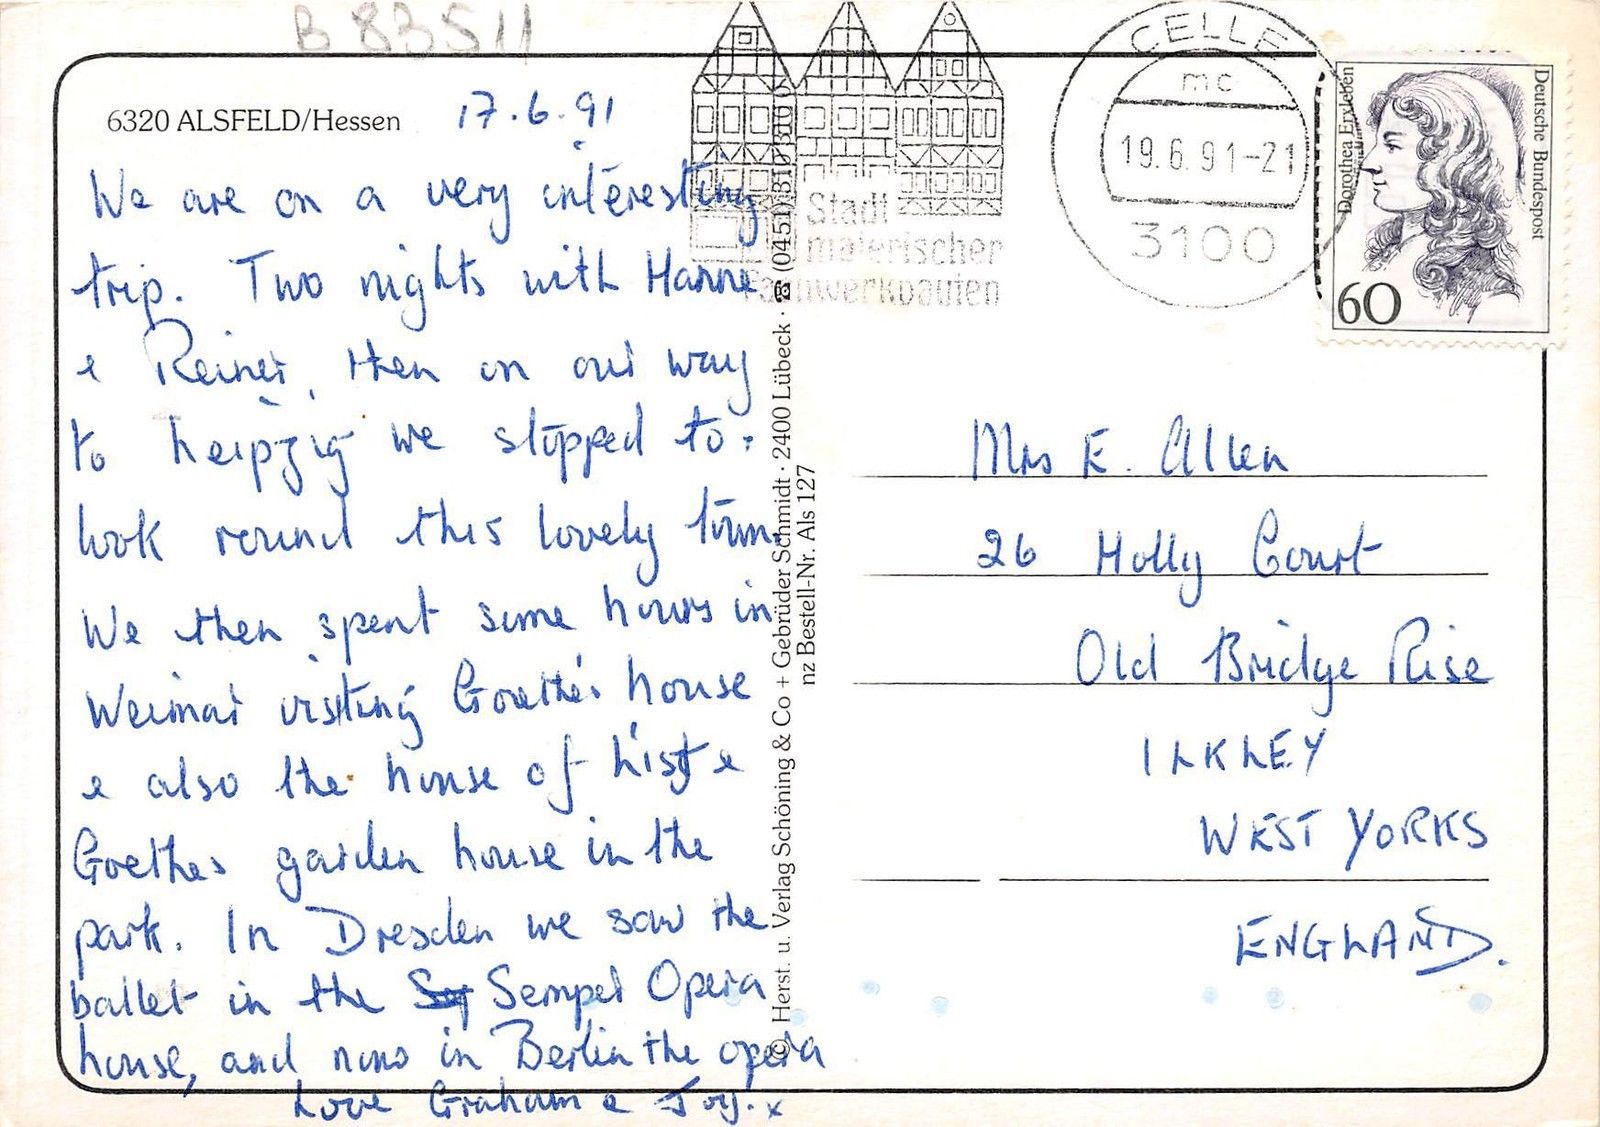 B 83511
6320 ALSFELD/Hessen 17.6.91
We are on a very interesting
trip. Two nights with Hanne
& Reiner, then on our way
to Leipzig we stopped to
look round this lovely town.
We then spent some hours in
Weimar visiting Goethe's house
& also the house of Liszt &
Goethes garden house in the
park. In Dresden we saw the
ballet in the Semper Opera
house, and now in Berlin the opera
Love Graham & Joy. x
© Herst. u. Verlag Schöning & Co + Gebrüder Schmidt · 2400 Lübeck · ☎ (0451) 310 310
nz Bestell-Nr. Als 127
Stadt
malerischer
Fachwerkbauten
CELLE
mc
19.6.91-21
3100
Dorothea Erxleben
Deutsche Bundespost
60
Mrs E. Allen
26 Holly Court
Old Bridge Rise
ILKLEY
WEST YORKS
ENGLAND.